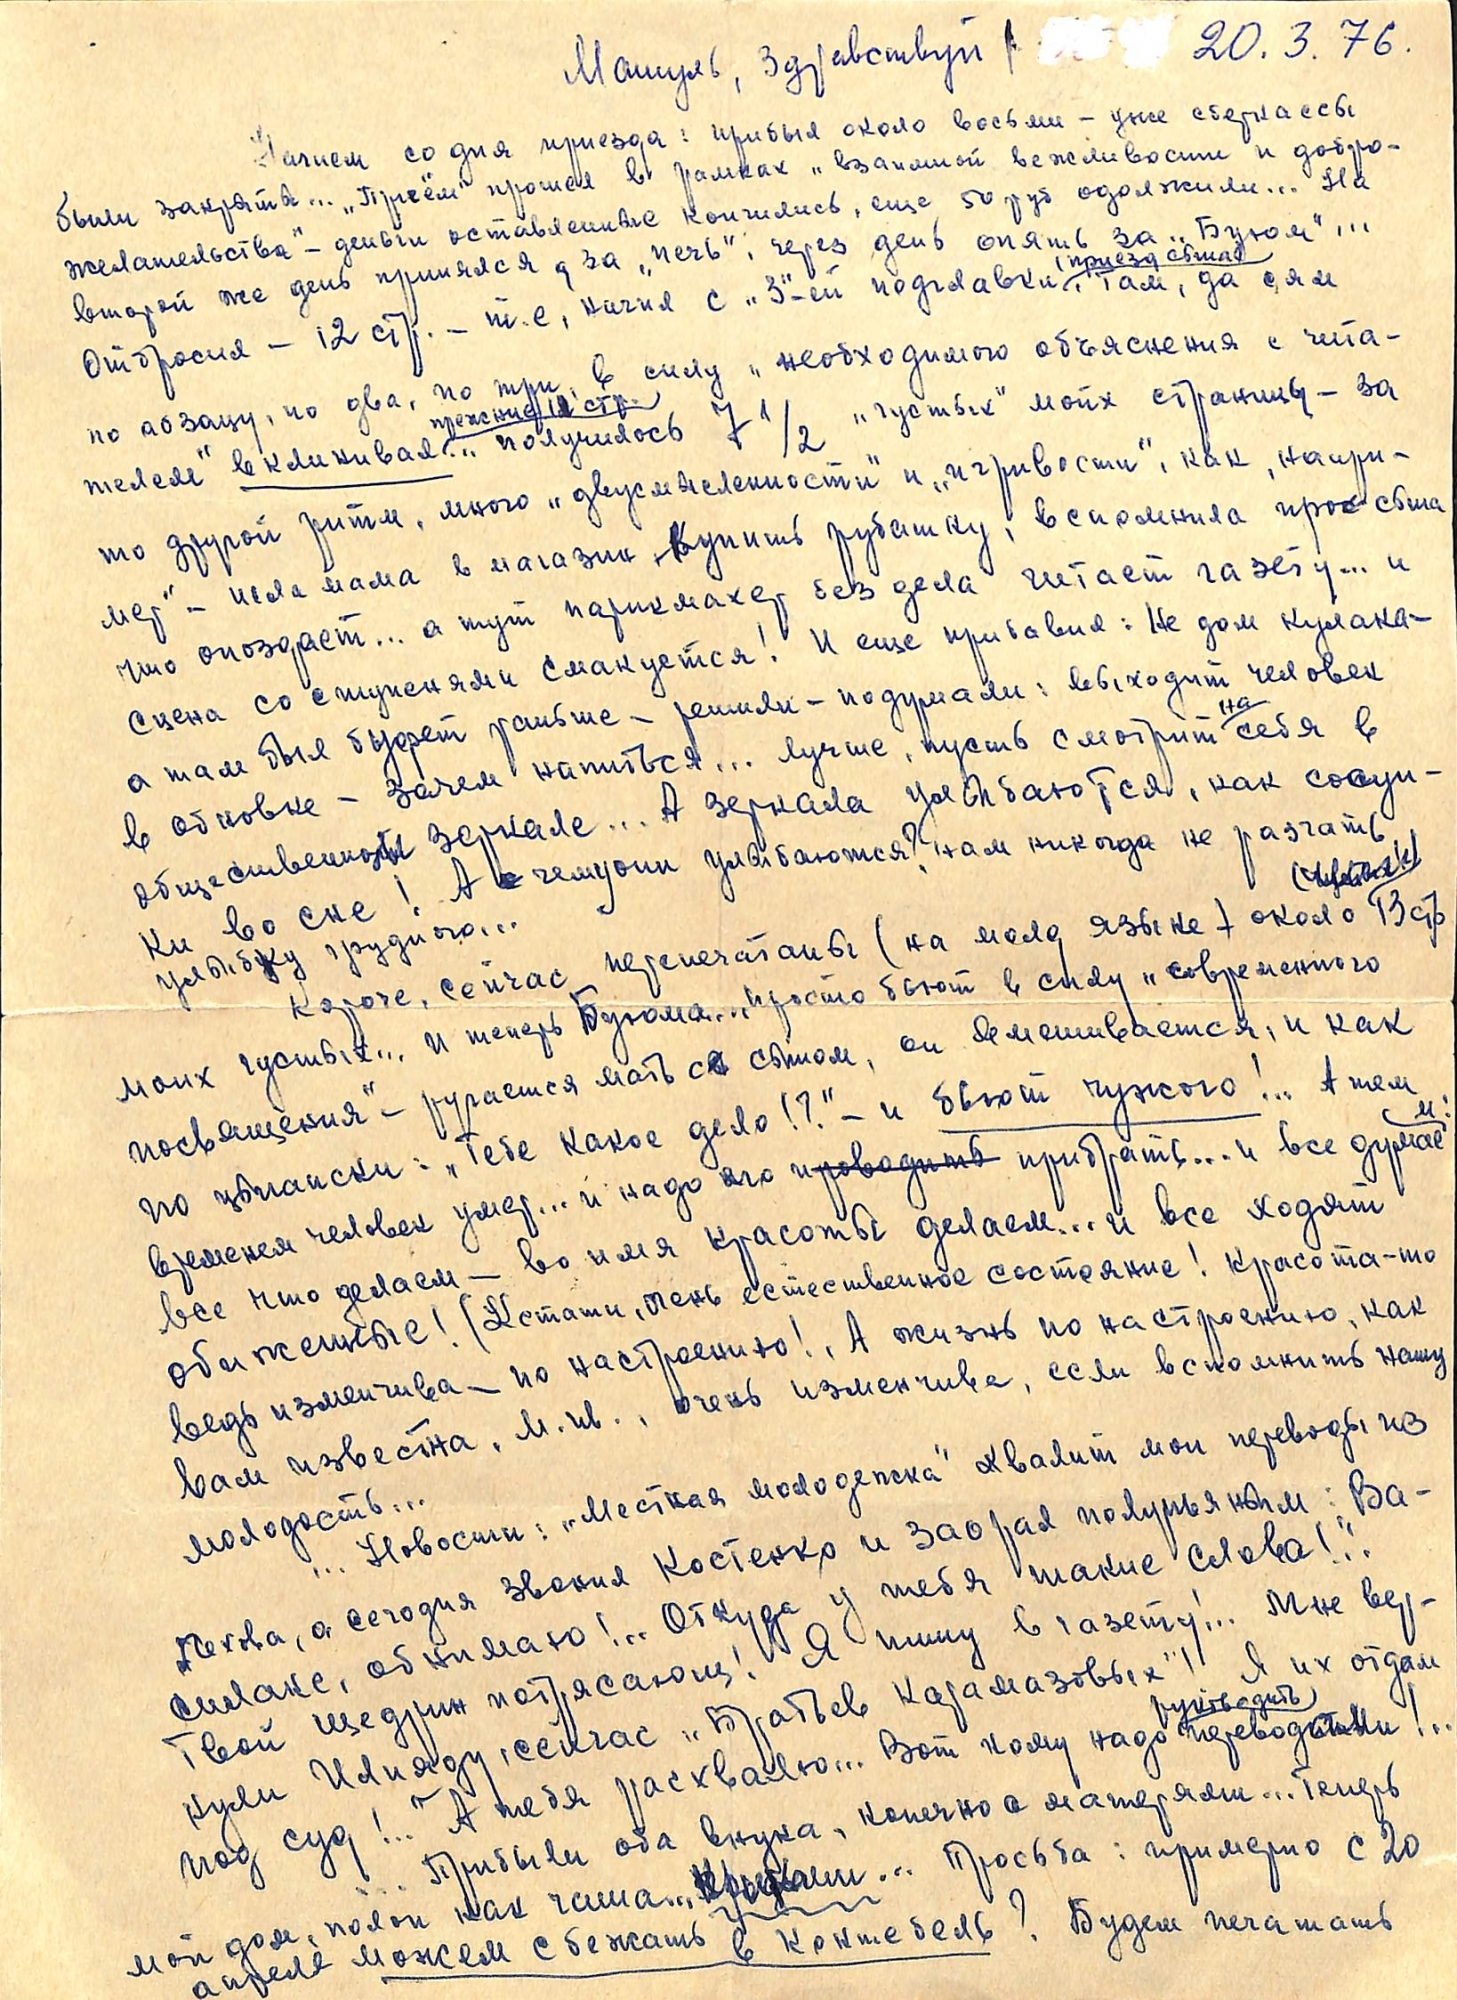 Машуль, здравствуй! 20.3.76.
Начнем со дня приезда: прибыл около восьми – уже сберкассы
были закрыты... „Приём" прошел в рамках „взаимной вежливости и добро-
желательства" – деньги оставленные кончились, еще 50 руб одолжили... На
второй же день принялся за „печь", через день опять за „Буюм"...
(приезд сына)
Отбросил – 12 стр. – т.е. начал с „3"-ей подглавки, там, да сям
по абзацу, по два, по три, в силу „необходимого объяснения с чита-
прежние 12 стр.
телем" вклинивал... получилось 7 1/2 „густых" моих страниц – за
то другой ритм, много „двусмысленности" и „игривости", как, напри-
мер" – шла мама в магазин купить рубашку, вспомнила просьба
что опоздает... а тут парикмахер без дела читает газету... и
сцена со ступенями смакуется! И еще прибавил: Не дом кулака –
а там был буфет раньше – решили – подумали: выходит человек
на
в обновке – зачем напиться... лучше, пусть смотрит себя в
общественном зеркале... А зеркала улыбаются, как сосун-
ки во сне! А чему они улыбаются? нам никогда не разгать
улыбку грудного...
Короче, сейчас перепечатаны (на молд языке) около 13 стр
моих густых... И теперь Буюма... просто бьют в силу „современного
посвящения" – ругается мать с сыном, он вмешивается, и как
по цыгански: „Тебе какое дело!?" – и бьют чужого!... А тем
м:
временем человек умер... и надо его проводить прибрать... и все думае
все что делаем – во имя красоты делаем... и все ходят
обиженные! (Кстати, очень естественное состояние! Красота-то
ведь изменчива – по настроению!, А жизнь по настроению, как
вам известна, М. Ив., очень изменчива, если вспомнить нашу
молодость...
... Новости: „Местная молодежка" хвалит мои переводы из
Чехова, а сегодня звонил Костенко и заорал полупьяным: Ва-
силаке, обнимаю!... Откуда у тебя такие слова!"...
Твой Щедрин потрясающ! Я пишу в газету!... Мне вер-
нули Илиаду, сейчас „Братьев Карамазовых"! Я их отдам
руководить
под суд!..." А тебя расхвалю... Вот кому надо переводами!...
... Прибыли оба внука, конечно с матерями... Теперь
мой дом, полон как чаша... ... Просьба: примерно с 20
апреля можем сбежать в Коктебель? Будем печатать